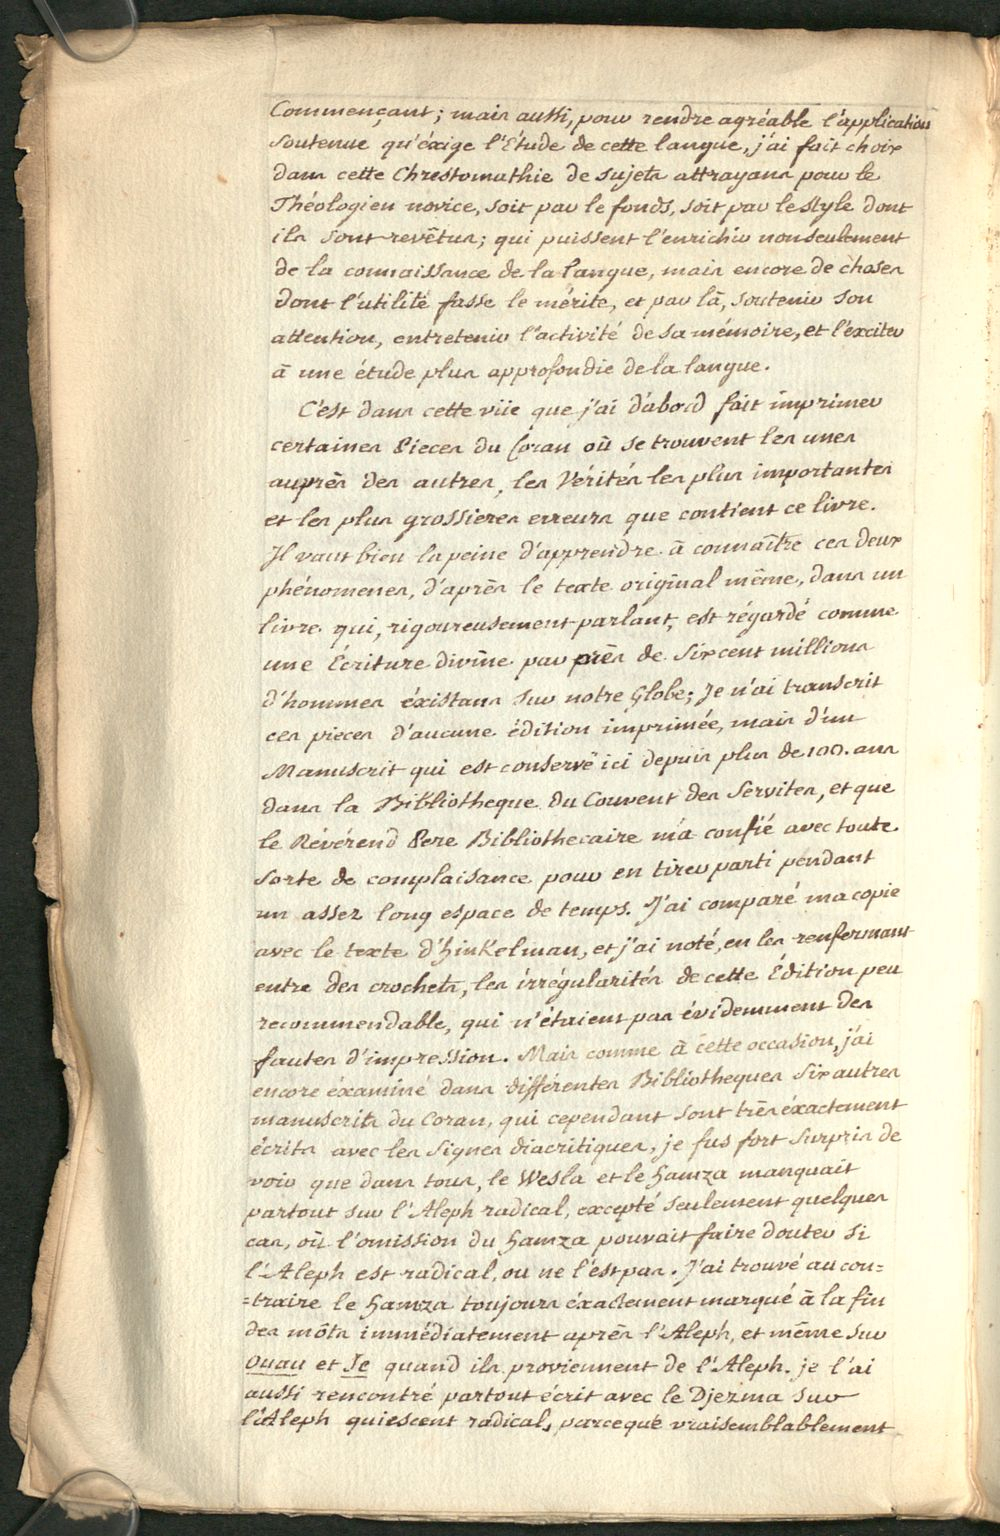 Commençant; mais aussi, pour rendre agréable l'application
soutenue qu'éxige l'Etude de cette langue, j'ai fait choix
dans cette Chrestomathie de sujets attrayans pour le
Théologien novice, soit par le fonds, soit par le style dont
ils sont revêtus; qui puissent l'enrichir nonseulement
de la connaissance de la langue, mais encore de choses
dont l'utilité fasse le mérite, et par là, soutenir son
attention, entretenir l'activité de sa mémoire, et l'exciter
à une étude plus approfondie de la langue.
C'est dans cette vüe que j'ai d'abord fait imprimer
certaines Pieces du Coran où se trouvent les unes
auprès des autres, les Vérités les plus importantes
et les plus grossieres erreurs que contient ce livre.
Il vaut bien la peine d'apprendre à connaître ces deux
phénomenes, d'après le texte original même, dans un
livre qui, rigoureusement parlant, est régardé comme
une Ecriture divine par près de Six cent millions
d'hommes éxistans sur notre Globe; Je n'ai transcrit
ces pieces d'aucune édition imprimée, mais d'un
Manuscrit qui est conservé ici depuis plus de 100. ans
dans la Bibliotheque du Couvent des Servites, et que
le Révérend Pere Bibliothecaire m'a confié avec toute
sorte de complaisance pour en tirer parti pendant
un assez long espace de temps. J'ai comparé ma copie
avec le texte d'hinkelman, et j'ai noté, en les renfermant
entre des crochets, les irrégularités de cette Édition peu
recommendable, qui n'étaient pas évidemment des
fautes d'impression. Mais comme à cette occasion, j'ai
encore éxaminé dans différentes Bibliotheques Six autres
manuscrits du Coran, qui cependant sont très éxactement
écrits avec les Signes diacritiques, je fus fort surpris de
voir que dans tous, le Wesla et le hamza manquait
partout sur l'Aleph radical, excepté seulement quelques
cas, où l'omission du hamza pouvait faire douter si
l'Aleph est radical, ou ne l'est pas. J'ai trouvé au con=
=traire le hamza toujours éxactement marqué à la fin
des môts immédiatement après l'Aleph, et même sur
Ouau et Je quand ils proviennent de l'Aleph. je l'ai
aussi rencontré partout écrit avec le Djezma sur
l'Aleph quiescent radical, parceque vraisemblablement